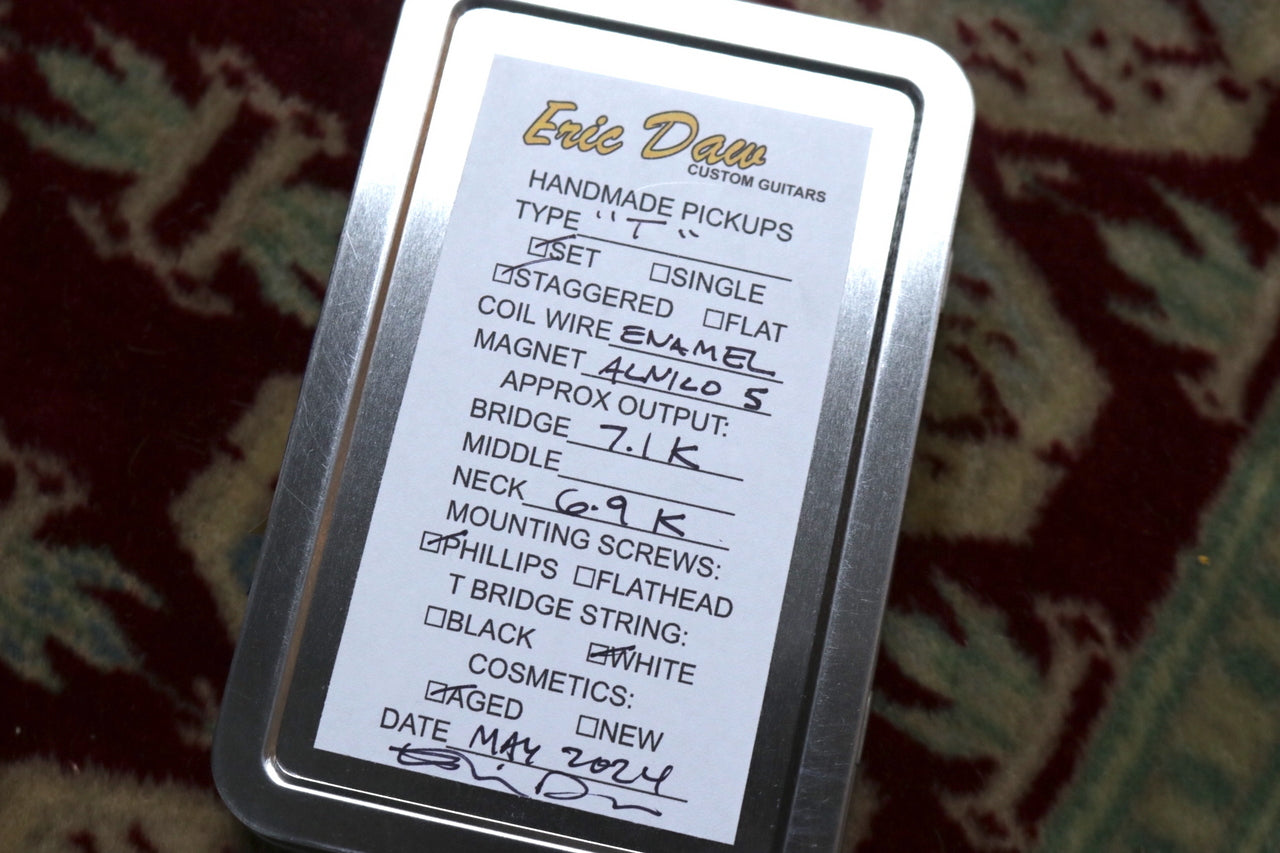 Eric Daw
CUSTOM GUITARS
HANDMADE PICKUPS
TYPE "T"
☑SET ☐SINGLE
☑STAGGERED ☐FLAT
COIL WIRE ENAMEL
MAGNET ALNICO 5
APPROX OUTPUT:
BRIDGE 7.1K
MIDDLE
NECK 6.9K
MOUNTING SCREWS:
☑PHILLIPS ☐FLATHEAD
T BRIDGE STRING:
☐BLACK ☑WHITE
COSMETICS:
☑AGED ☐NEW
DATE MAY 2024
Eric Daw